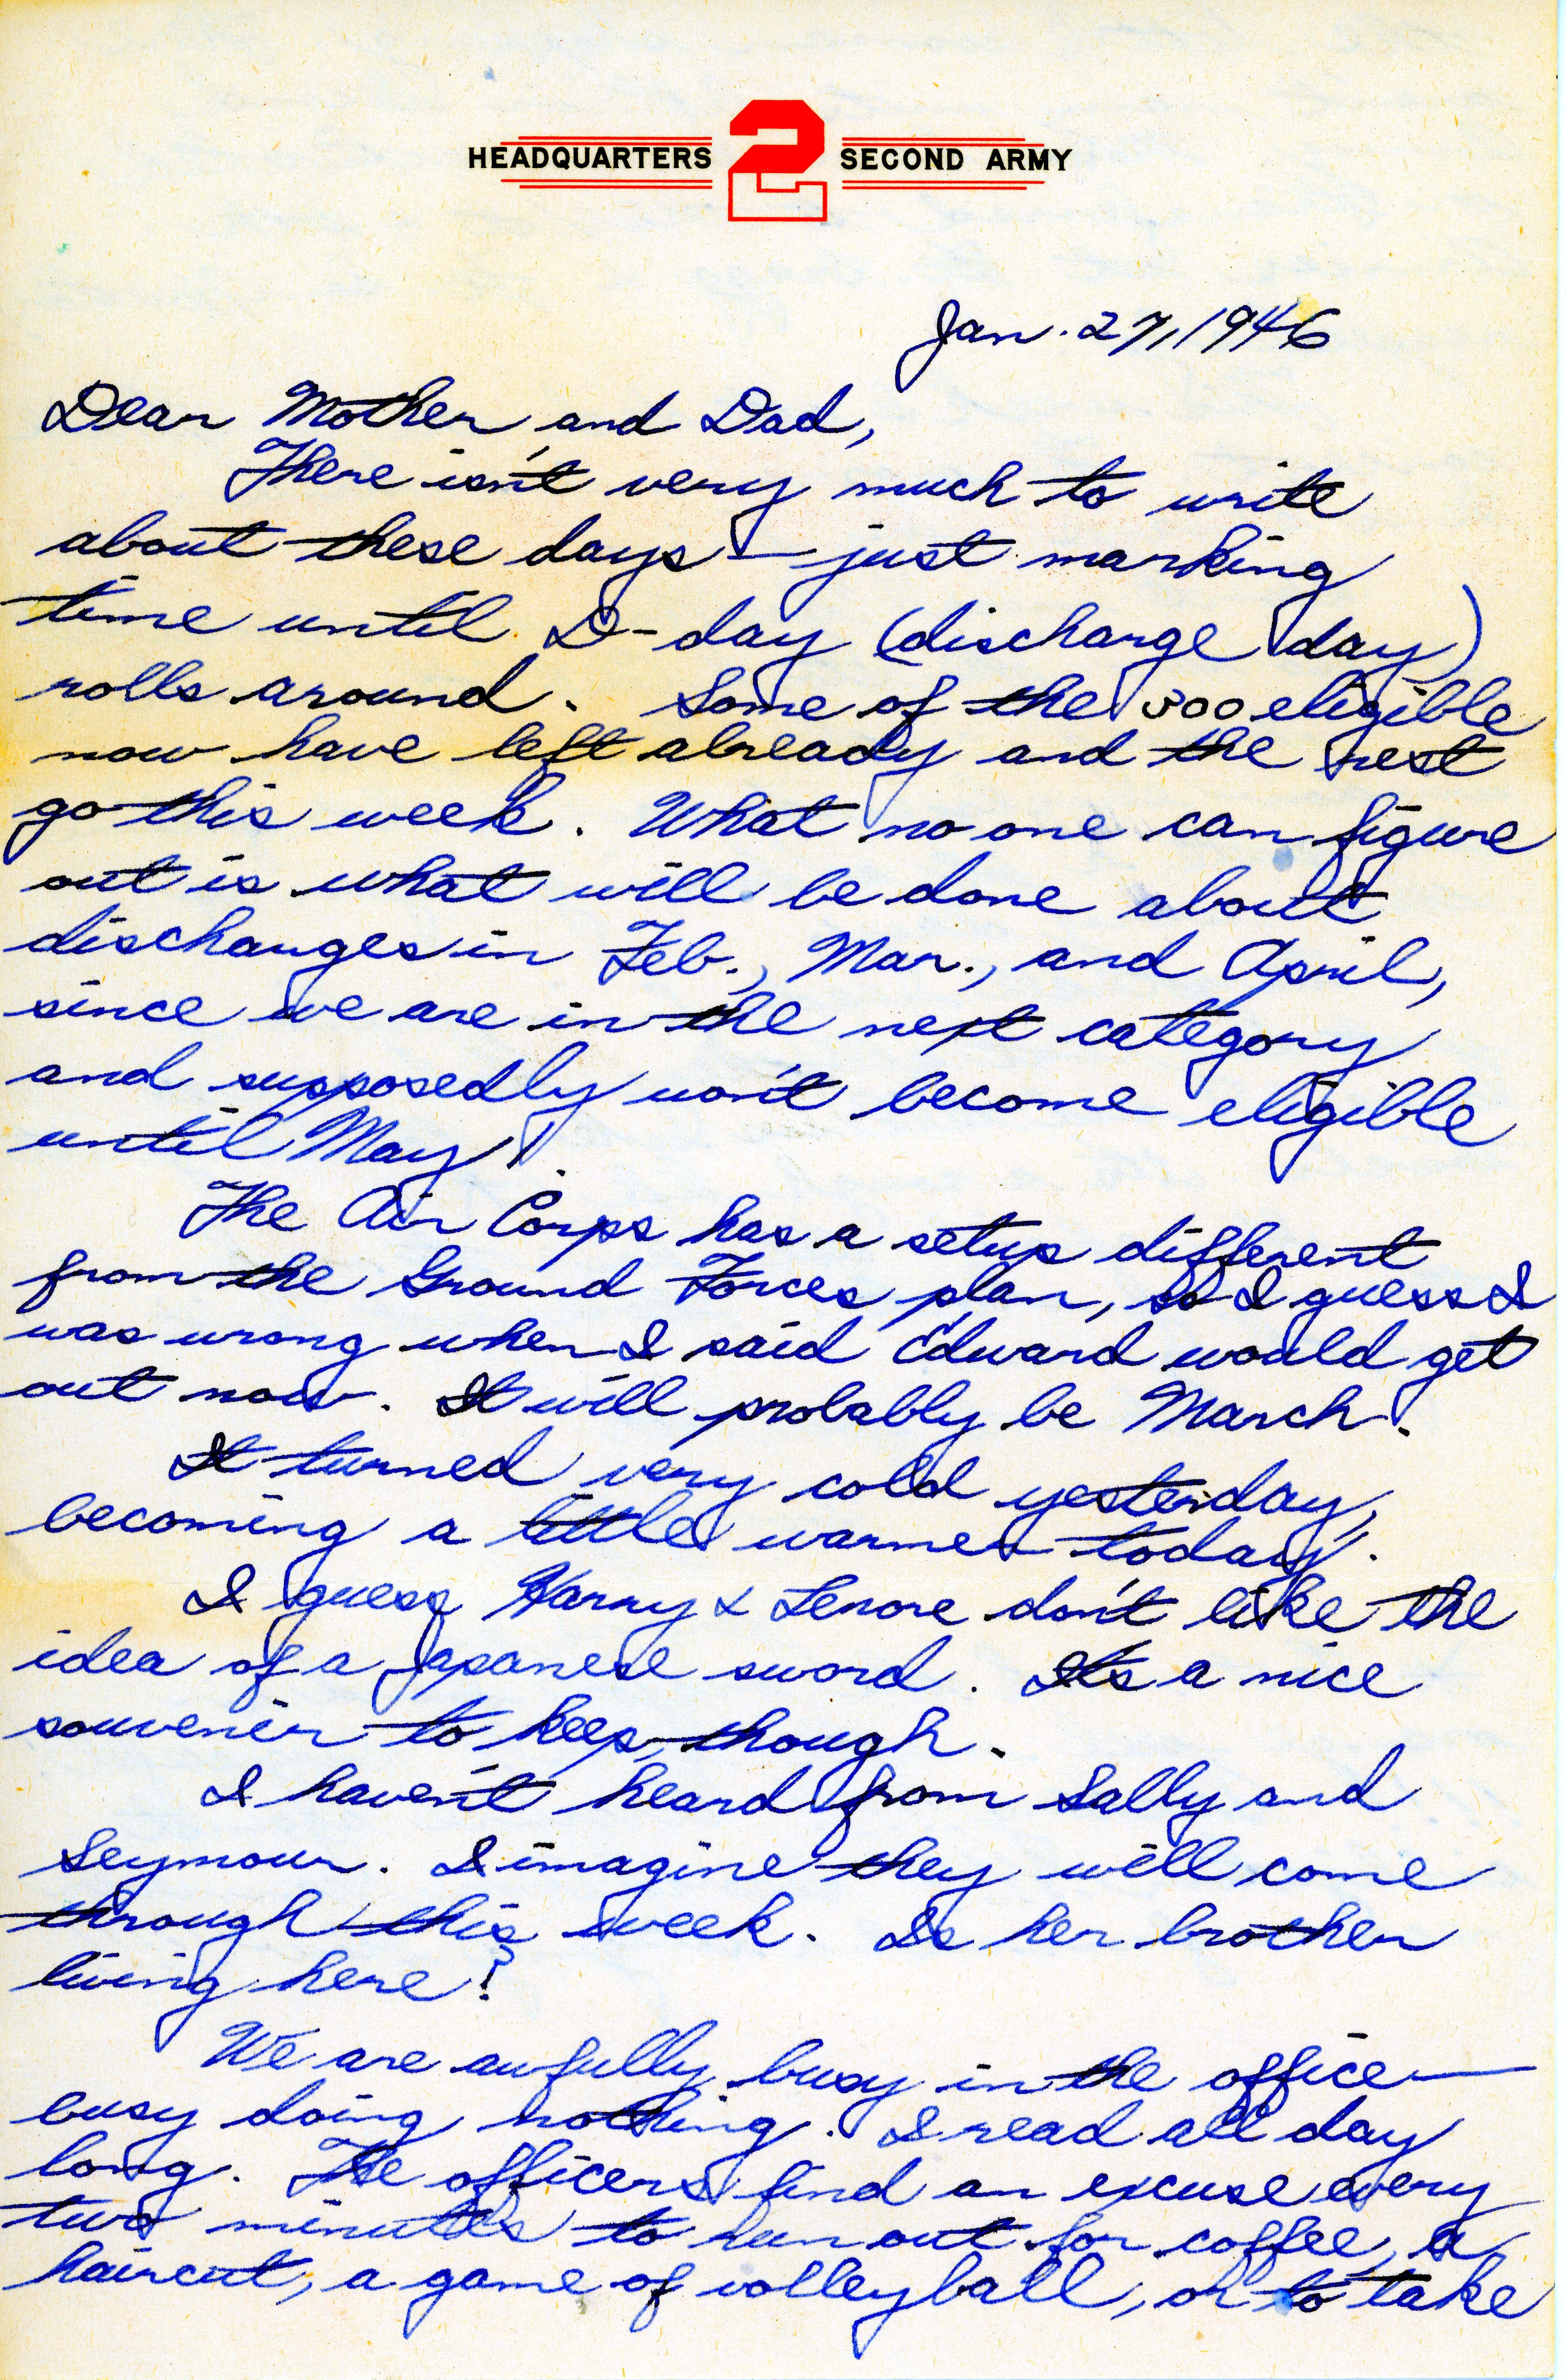 HEADQUARTERS 2 SECOND ARMY
Jan. 27, 1946
Dear Mother and Dad,
There isn't very much to write
about these days — just marking
time until D-day (discharge day)
rolls around. Some of the 300 eligible
now have left already and the rest
go this week. What no one can figure
out is what will be done about
discharges in Feb., Mar., and April,
since we are in the next category
and supposedly won't become eligible
until May!
The Air Corps has a setup different
from the Ground Forces plan, so I guess I
was wrong when I said Edward would get
out now. It will probably be March.
It turned very cold yesterday,
becoming a little warmer today.
I guess Harry & Lenore don't like the
idea of a Japanese sword. It's a nice
souvenir to keep, though.
I haven't heard from Sally and
Seymour. I imagine they will come
through this week. Is her brother
living here?
We are awfully busy in the office —
busy doing nothing. I read all day
long. The officers find an excuse every
two minutes to run out for coffee, a
haircut, a game of volleyball, or to take